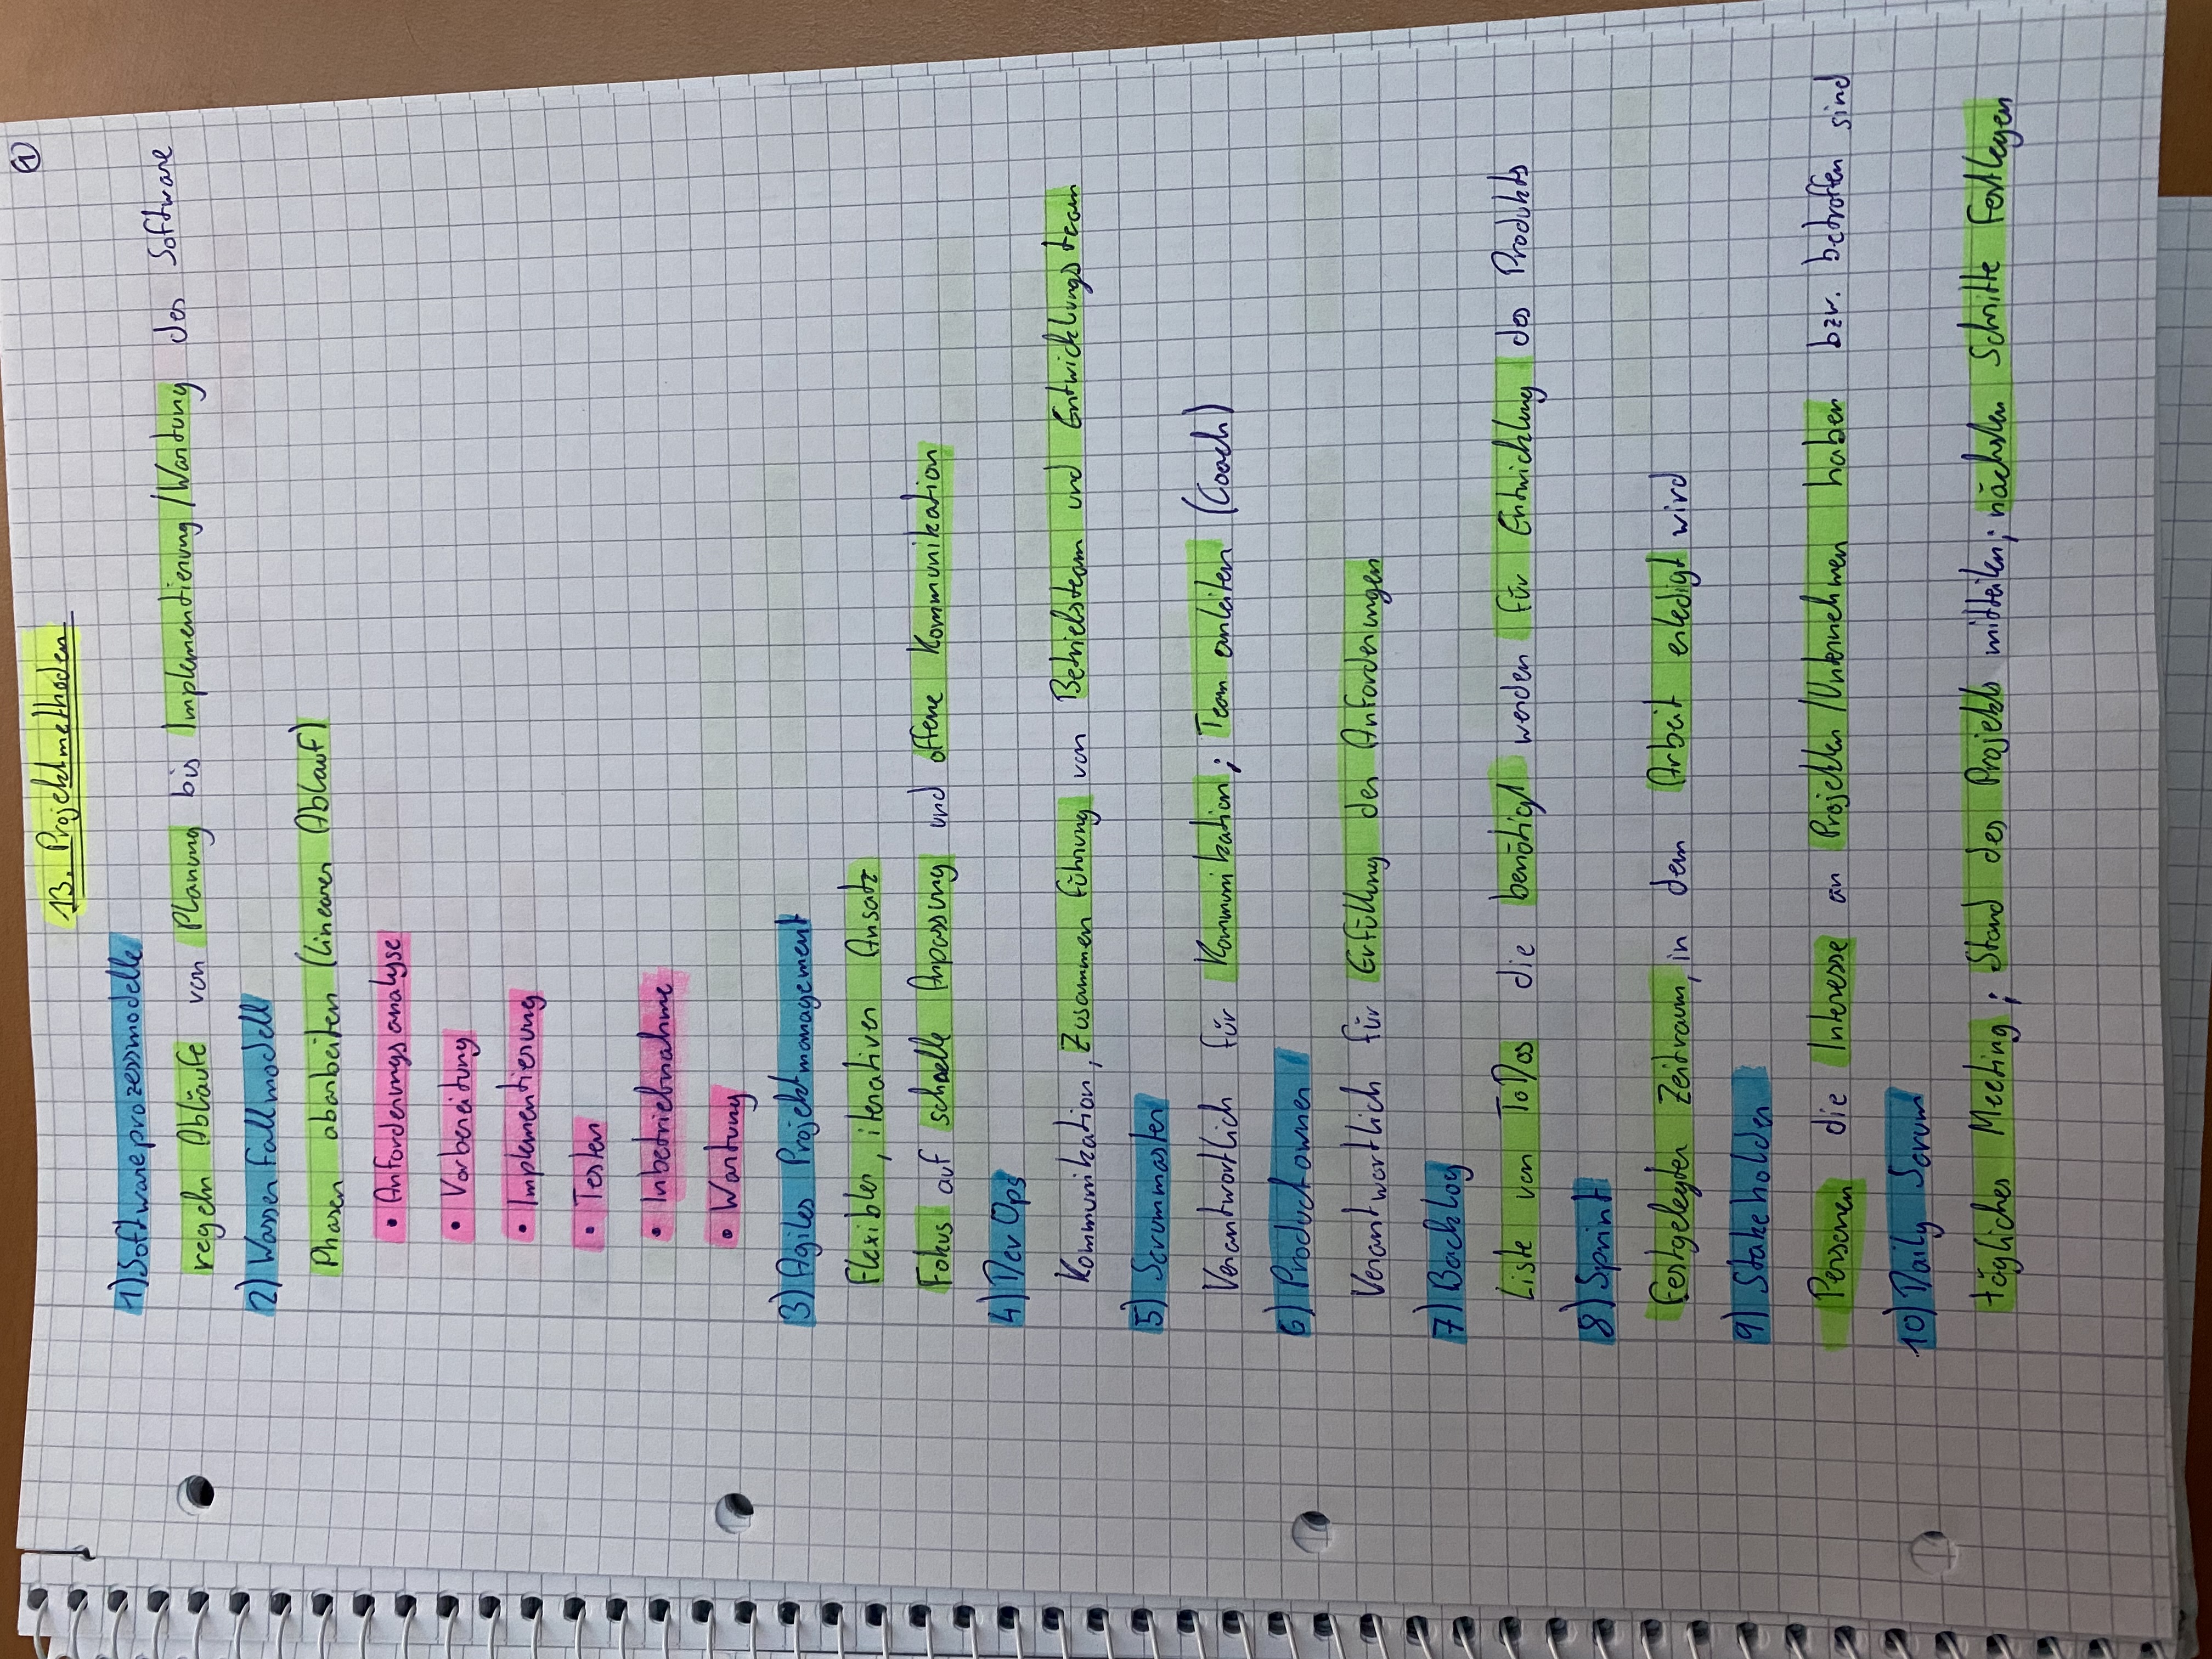 ①
13. Projektmethoden
1) Softwareprozessmodelle
regeln Abläufe von Planung bis Implementierung/Wartung der Software
2) Wasserfallmodell
Phasen abarbeiten (linearer Ablauf)
• Anforderungsanalyse
• Vorbereitung
• Implementierung
• Testen
• Inbetriebnahme
• Wartung
3) Agiles Projektmanagement
Flexibler, iterativer Ansatz
Fokus auf schnelle Anpassung und offene Kommunikation
4) DevOps
Kommunikation, Zusammenführung von Betriebsteam und Entwicklungsteam
5) Scrummaster
Verantwortlich für Kommunikation; Team anleiten (Coach)
6) Productowner
Verantwortlich für Erfüllung der Anforderungen
7) Backlog
Liste von ToDos die benötigt werden für Entwicklung des Produkts
8) Sprint
Festgelegter Zeitraum, in dem Arbeit erledigt wird
9) Stakeholder
Personen die Interesse an Projekten/Unternehmen haben bzw. betroffen sind
10) Daily Scrum
tägliches Meeting; Stand des Projekts mitteilen; nächsten Schritte festlegen